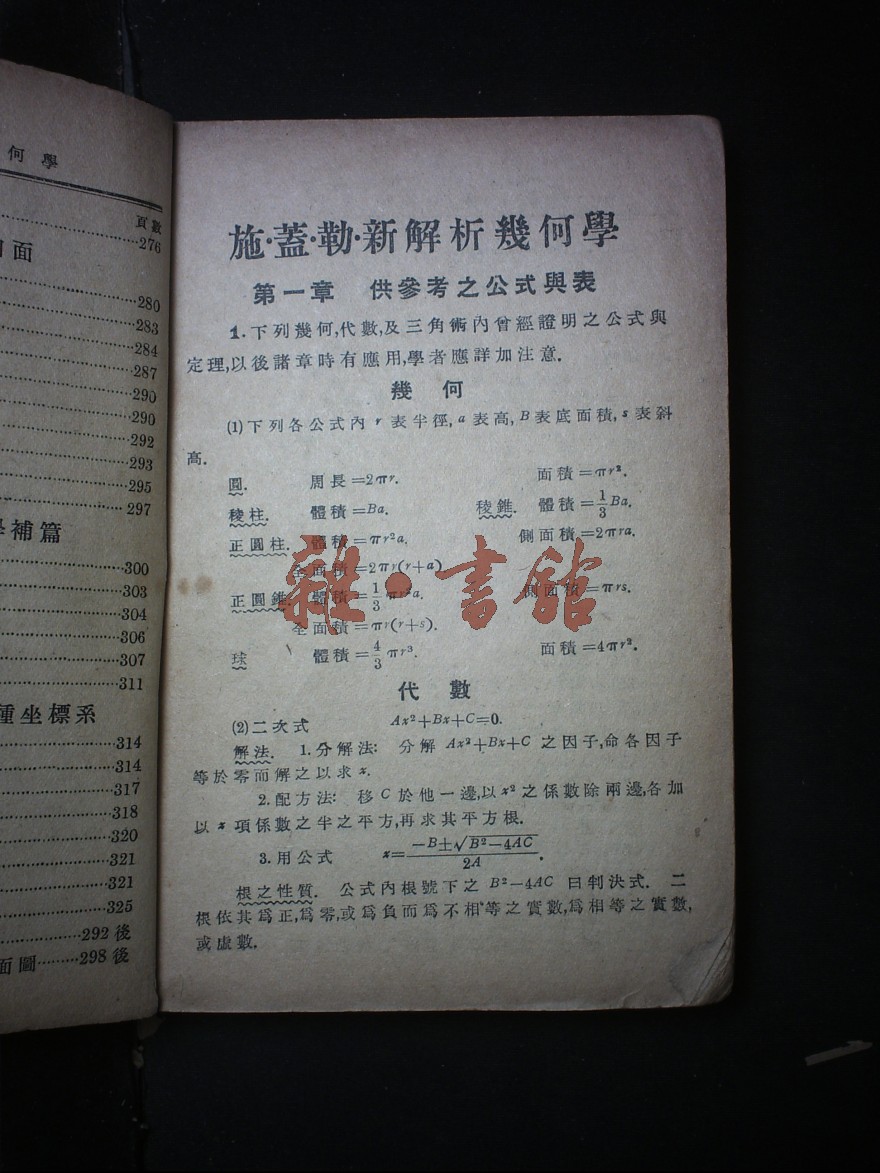 何學
頁數
276
面
280
283
284
287
290
290
292
293
295
297
補篇
300
303
304
306
307
311
種坐標系
314
314
317
318
320
321
321
325
292後
面圖 298後
施·蓋·勒·新解析幾何學
第一章 供參考之公式與表
1.下列幾何,代數,及三角術內曾經證明之公式與
定理,以後諸章時有應用,學者應詳加注意.
幾 何
(1)下列各公式內 r 表半徑,a 表高,B 表底面積,s 表斜
高.
圓. 周長=2πr. 面積=πr².
稜柱. 體積=Ba. 稜錐. 體積=1/3 Ba.
正圓柱. 體積=πr²a. 側面積=2πra.
全面積=2πr(r+a)
正圓錐. 體積=1/3 πr²a. 側面積=πrs.
全面積=πr(r+s).
球 體積=4/3 πr³. 面積=4πr².
雜·書館
代 數
(2)二次式 Ax²+Bx+C=0.
解法. 1.分解法: 分解 Ax²+Bx+C 之因子,命各因子
等於零而解之以求 x.
2.配方法: 移 C 於他一邊,以 x² 之係數除兩邊,各加
以 x 項係數之半之平方,再求其平方根.
3.用公式 x=(-B±√(B²-4AC))/2A.
根之性質. 公式內根號下之 B²-4AC 曰判決式. 二
根依其爲正,爲零,或爲負而爲不相等之實數,爲相等之實數,
或虛數.